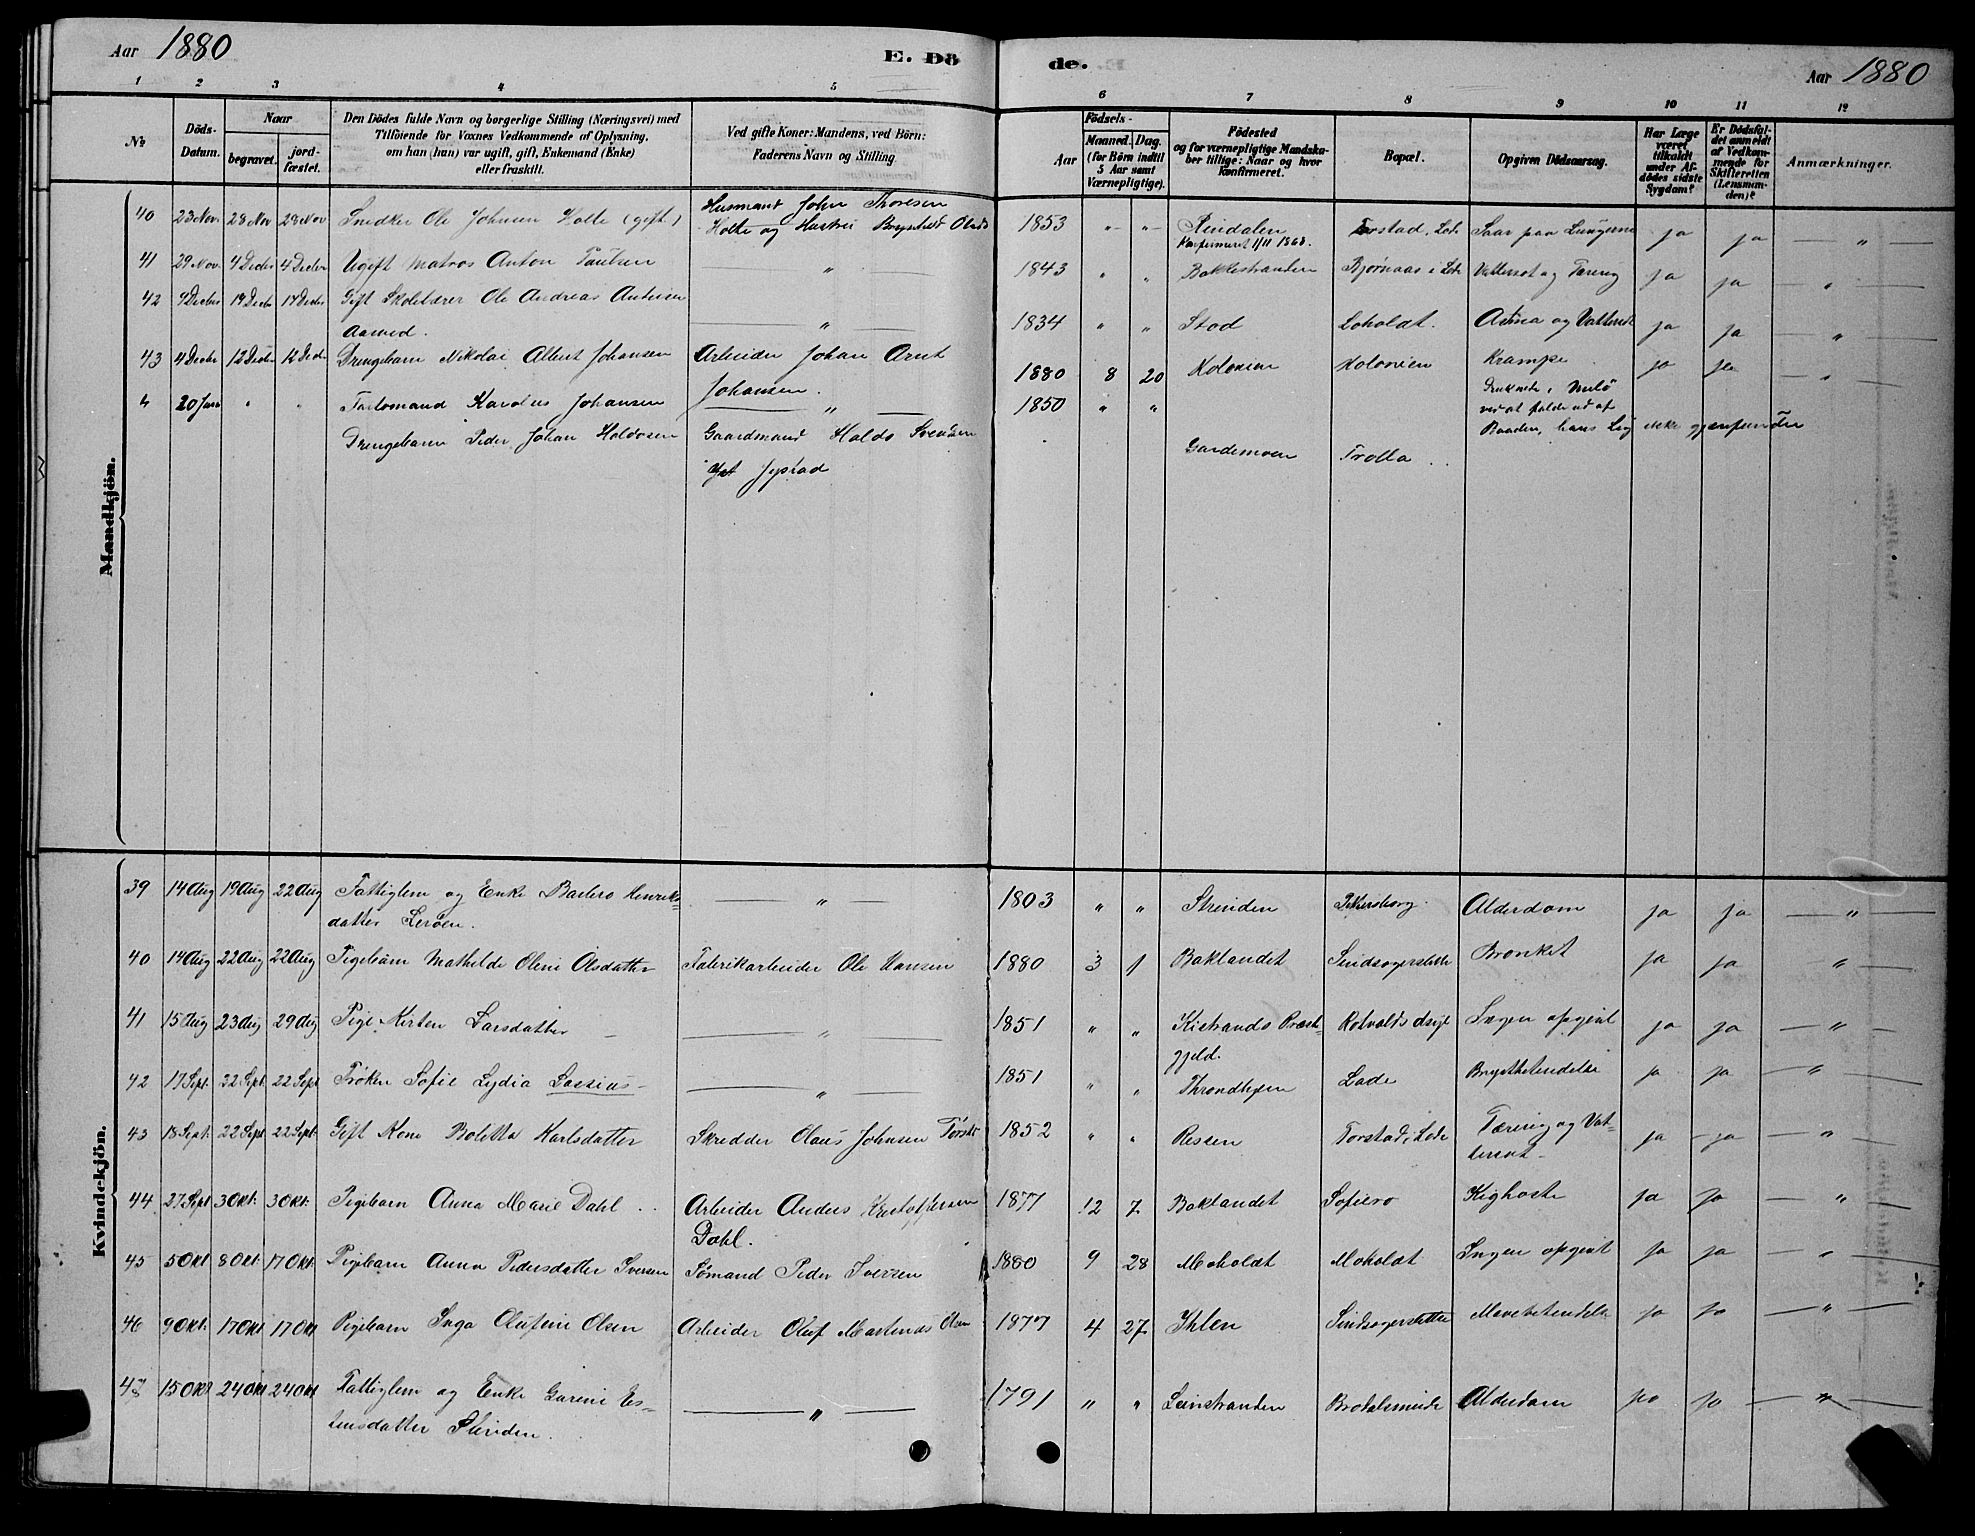 Aar 1880
E. Dö
de.
Aar 1880
1 2 3 4 5 6 7 8 9 10 11 12
No
Döds-Datum.
Naar
begravet.
jord-fæstet.
Den Dödes fulde Navn og borgerlige Stilling (Næringsvei) med
Tilföiende for Voxnes Vedkommende af Oplysning,
om han (hun) var ugift, gift, Enkemand (Enke)
eller fraskilt.
Ved gifte Koner: Mandens, ved Börn:
Faderens Navn og Stilling.
Födsels-
Aar
Maaned. Dag.
(for Börn indtil
5 Aar samt
Værnepligtige).
Födested
og for værnepligtige Mandska-
ber tillige: Naar og hvor
konfirmeret.
Bopæl.
Opgiven Dödsaarsag.
Har Læge
været
tilkaldt
under Af-
dödes sidste
Sygdom?
Er Dödsfal-
det anmeldt
af Vedkom-
mende for
Skifteretten
(Lensman-
den)?
Anmærkninger.
Mandkjön.
40 23 Nov. 28 Nov 28 Nov Snedker Ole Johnsen Holte (gift) Husmand John Thoresen 1853 " " Rindalen Lade Saar paa Lungerne ja ja "
Holte og Hustru Brynhild Olsd
Konfirmeret 1/11 1868.
41 29 Nov. 4 Decbr 4 Decbr Ugift Matros Anton Paulsen " 1843 " " Bakkestranden Bjørnaas i Lade Vattersot og Tæring ja ja "
42 9 Decbr 14 Decbr 17 Decbr Gift Skolelærer Ole Andreas
Aarved. " 1834 " " Stod Loholdt. Astma og Vattersot ja ja "
43 4 Decbr 12 Decbr 12 Decbr Drengebarn Nikolai Albert Johansen Arbeider Johan Arnt
Johansen. 1880 8 20 Kolonien Kolonien Krampe ja ja "
4 20 Juni " " Karolus Johansen " 1850 " " Druknede i
ved at falde ud af
Baaden, hans Lig ikke gjenfunden
Drengebarn Peder Johan Holdosen Gaardmand Holdo Svendsen Gardemoen Trolla
Jystad
Kvindekjön.
39 14 Aug 19 Aug 22 Aug Fattiglem og Enke Barbro Henriks-
datter Lerøen. " 1803 " " Strinden Petersborg. Alderdom ja ja "
40 14 Aug 22 Aug 22 Aug Pigebarn Mathilde Oline Olsdatter Fabrikarbeider Ole Hansen 1880 3 1 Baklandet Sindsogerslette Bronket ja ja "
41 15 Aug 23 Aug 29 Aug Pige Kirsten Larsdatter " 1851 " " Kistrands Præste-
gjeld. Rotvolds Asyl Ingen opgivet ja ja "
42 17 Sept. 22 Sept. 22 Sept Frøken Sofie Lydia Lassius " 1851 " " Throndhjem Lade Brystbetendelse ja ja "
43 18 Sept. 22 Sept 22 Sept. Gift Kone Boletta Karlsdatter Skredder Olaus Johnsen 1852 " " Rissen Torstad, Lade Tæring og Vat-
tersot ja ja "
44 27 Sept 3 Okt. 3 Okt. Pigebarn Anna Marie Dahl Arbeider Anders Kristoffersen
Dahl. 1877 12 7 Baklandet Sofiero Kighoste ja ja "
45 5 Okt 8 Okt. 17 Okt. Pigebarn Anna Pedersdatter Iversen Sømand Peder Iversen 1880 9 28 Moholdt Moholdt Ingen opgivet ja ja "
46 9 Okt. 17 Okt 17 Okt Pigebarn Inga Olufine Olsen Arbeider Oluf Martinus Olsen 1877 4 27 Ihlen Sindsogerslette Mavebetendelse ja ja "
47 15 Okt 24 Okt 24 Okt Fattiglem og Enke Gurine Es-
tensdatter Strinden. " 1791 " " Leinstranden Alderdom ja ja "